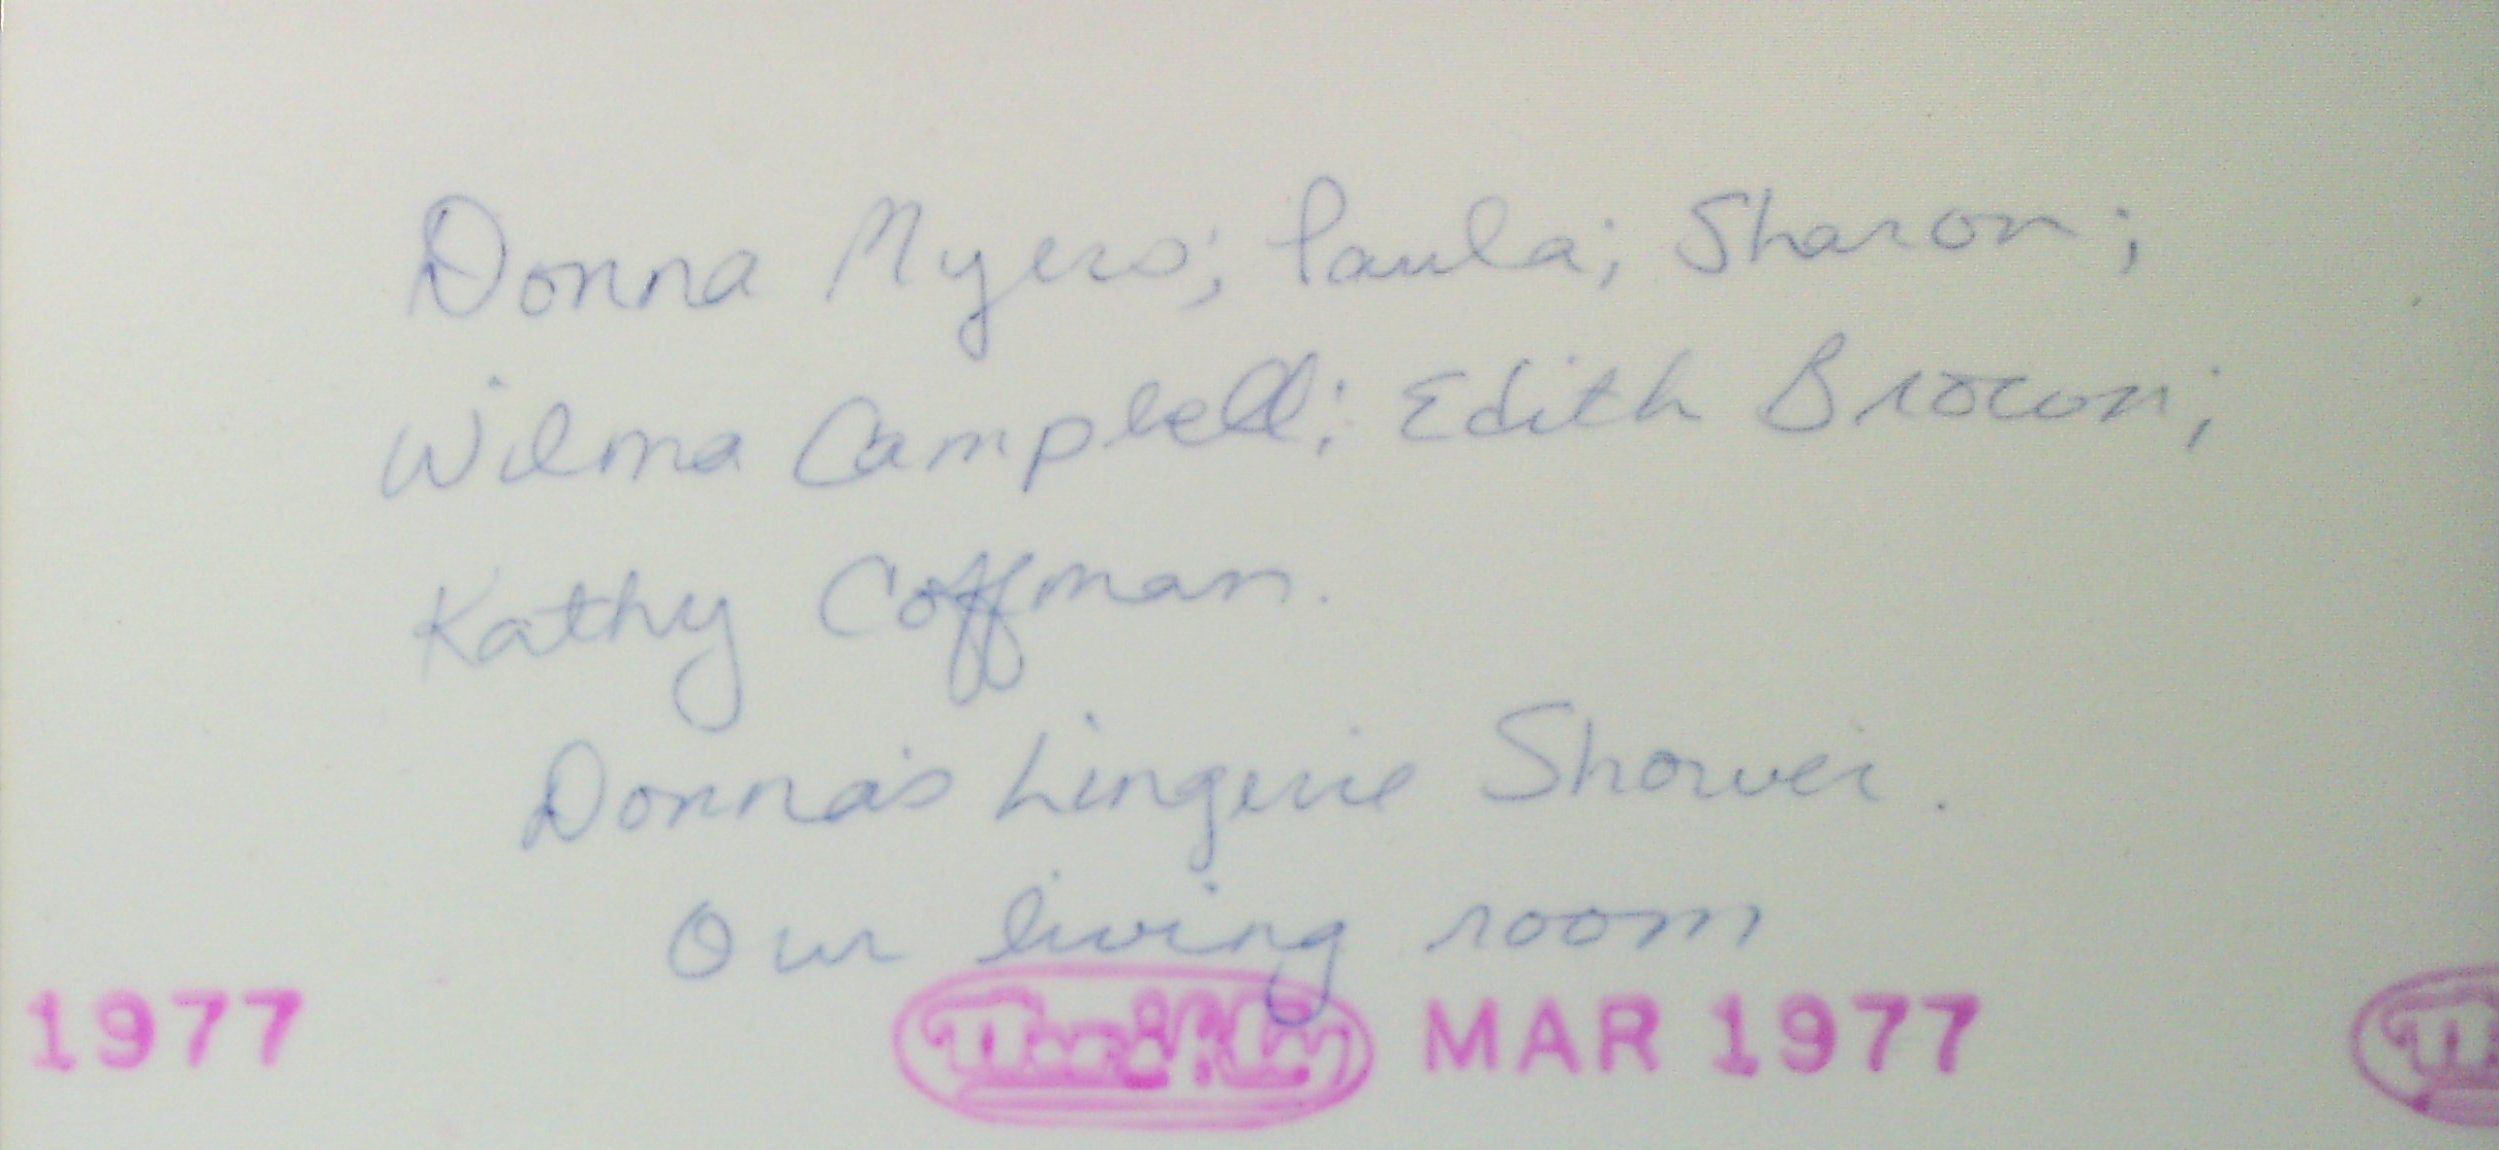 Donna Myers; Paula; Sharon;
Wilma Campbell; Edith Brown;
Kathy Coffman.
Donna's Lingerie Shower.
Our living room
1977 MAR 1977